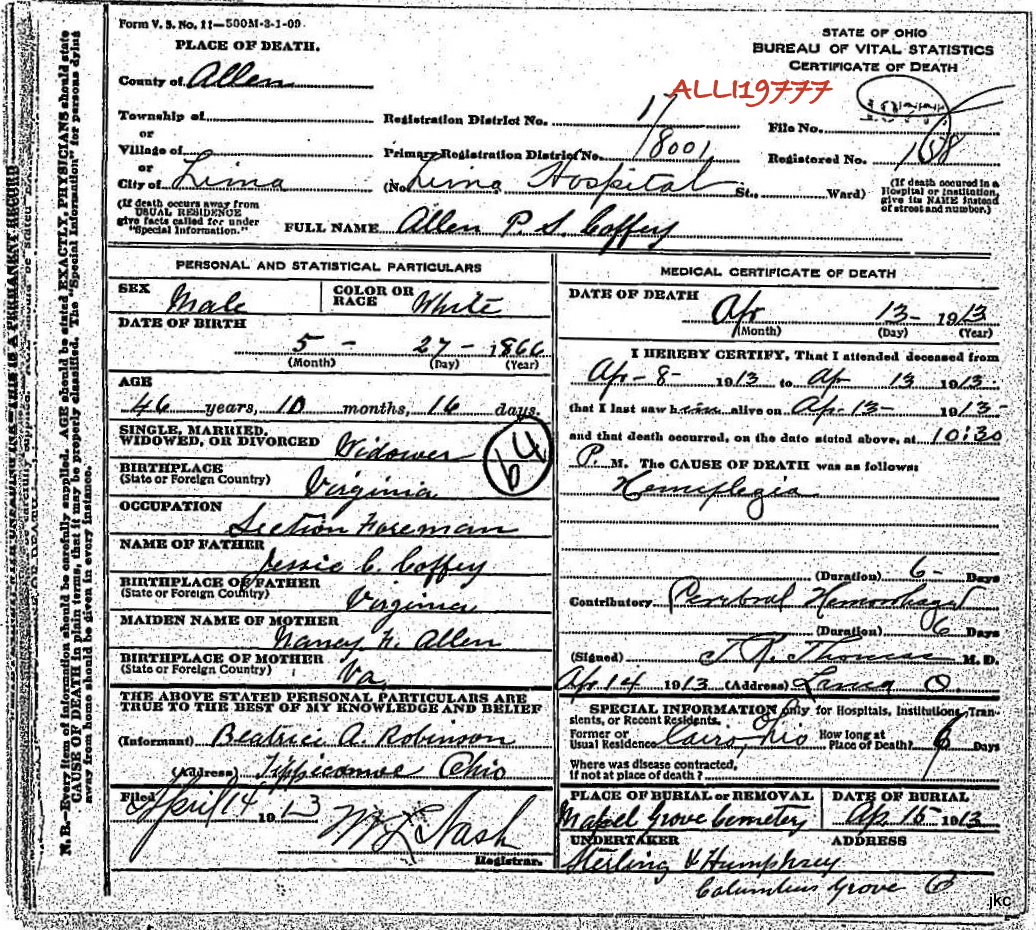 Form V. S. No. 11—500M-3-1-09
PLACE OF DEATH.
STATE OF OHIO
BUREAU OF VITAL STATISTICS
CERTIFICATE OF DEATH
County of Allen
ALLI19777
Township of
Registration District No. 17
File No.
or
Village of
Primary Registration District No. 18001
Registered No. 168
or
City of Lima
(No. Lima Hospital St., Ward)
(If death occured in a Hospital or Institution, give its NAME instead of street and number.)
(If death occurs away from USUAL RESIDENCE give facts called for under "Special Information.")
FULL NAME Allen P. S. Coffey
PERSONAL AND STATISTICAL PARTICULARS
SEX Male
COLOR OR RACE White
DATE OF BIRTH
5 - 27 - 1866
(Month) (Day) (Year)
AGE
46 years, 10 months, 16 days.
SINGLE, MARRIED, WIDOWED, OR DIVORCED Widower
64
BIRTHPLACE
(State or Foreign Country) Virginia
OCCUPATION
Section Foreman
NAME OF FATHER
Jessie C. Coffey
BIRTHPLACE OF FATHER
(State or Foreign Country) Virginia
MAIDEN NAME OF MOTHER
Nancy H. Allen
BIRTHPLACE OF MOTHER
(State or Foreign Country) Va
THE ABOVE STATED PERSONAL PARTICULARS ARE
TRUE TO THE BEST OF MY KNOWLEDGE AND BELIEF
(Informant) Beatrice A. Robinson
(Address) Tippicanoe Ohio
Filed April 14 1913
W J Nash
Registrar.
MEDICAL CERTIFICATE OF DEATH
DATE OF DEATH
Apr 13- 1913
(Month) (Day) (Year)
I HEREBY CERTIFY, That I attended deceased from
Ap-8- 1913 to Ap 13 1913
that I last saw him alive on Ap-13- 1913-
and that death occurred, on the date stated above, at 10:30
P. M. The CAUSE OF DEATH was as follows:
Hemiplegia
(Duration) 6- Days
Contributory Cerebral Hemorrhage
(Duration) 6 Days
(Signed) T. R. Thomas M. D.
Ap 14 1913 (Address) Lima O.
SPECIAL INFORMATION only for Hospitals, Institutions, Transients, or Recent Residents.
Former or
Usual Residence Cairo, Ohio
How long at
Place of Death? 6 Days
Where was disease contracted,
if not at place of death?
PLACE OF BURIAL or REMOVAL
Mapel Grove Cemetery
DATE OF BURIAL
Ap 15 1913
UNDERTAKER
Sterling & Humphrey
ADDRESS
Columbus Grove O
jkc
N. B.—Every item of information should be carefully supplied. AGE should be stated EXACTLY, PHYSICIANS should state
CAUSE OF DEATH in plain terms, that it may be properly classified. The "Special Information" for persons dying
away from home should be given in every instance.